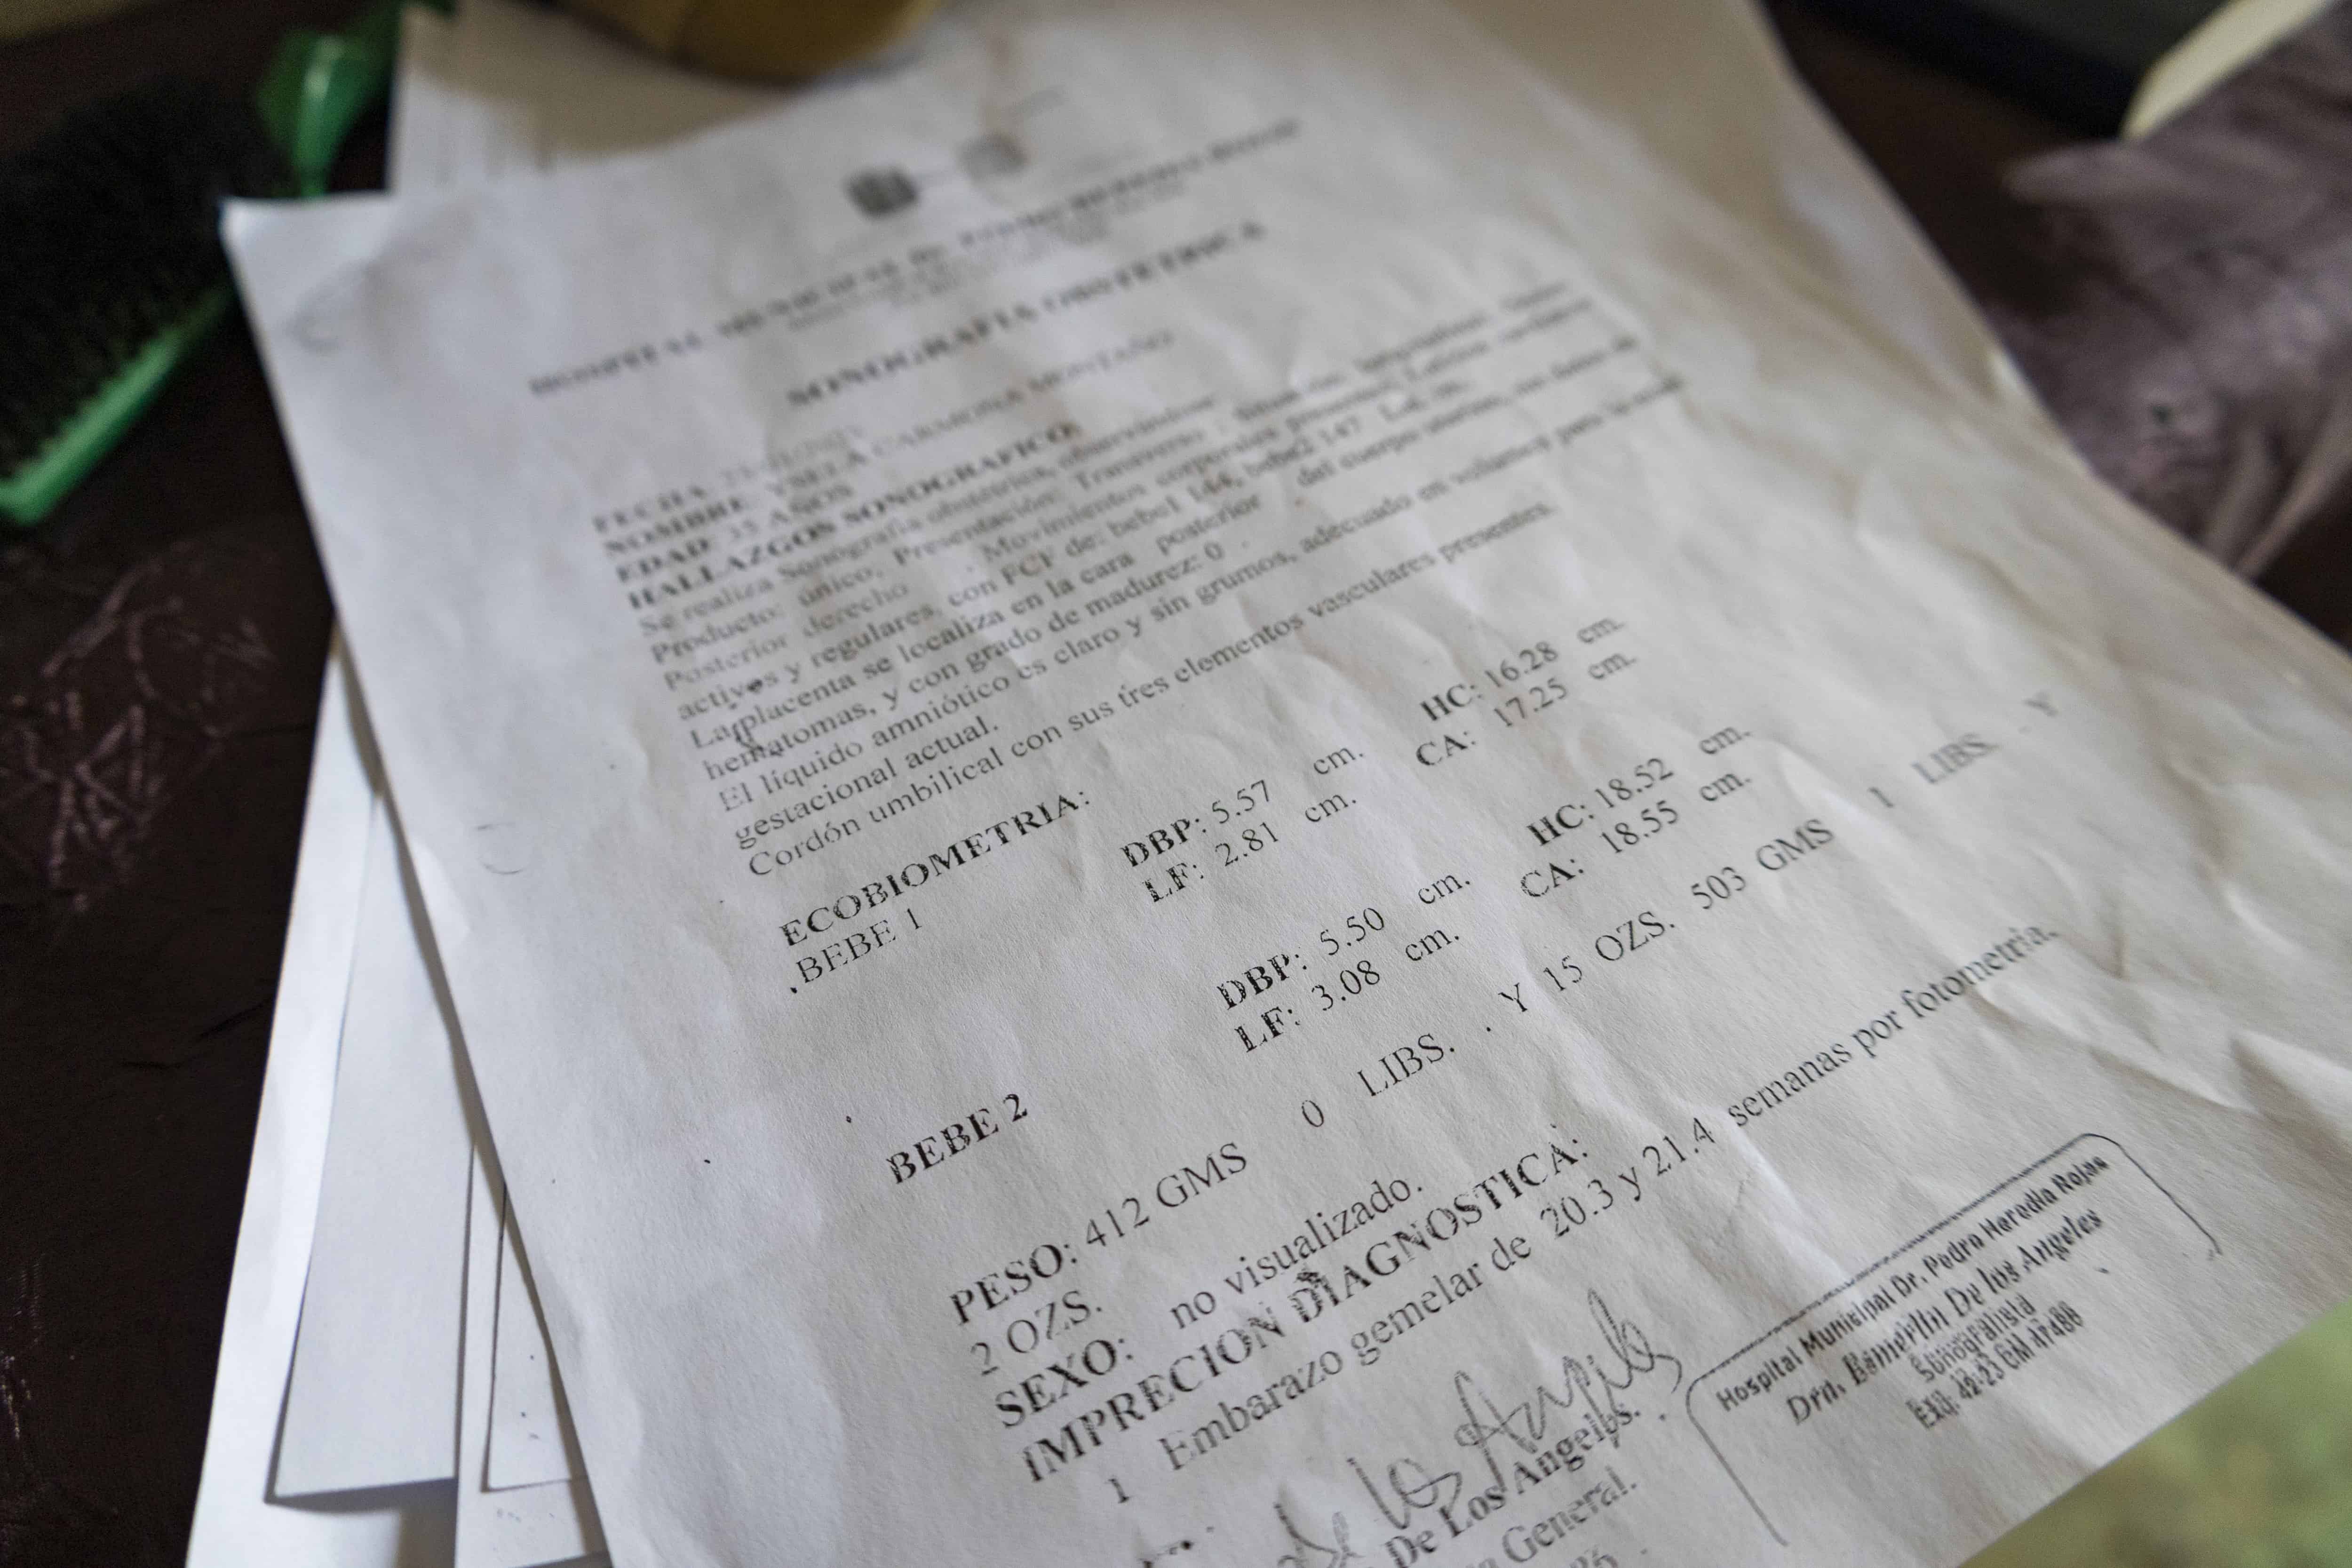 HOSPITAL MUNICIPAL Dr.
SONOGRAFIA OBSTETRICA
FECHA
NOMBRE CARMONA MONTAÑO
EDAD 33 AÑOS
HALLAZGOS SONOGRAFICO:
Se realiza Sonografia obstetrica, observandose:
Producto: único, Presentación: Transverso
Posterior derecho . Movimientos corporales presentes,
activos y regulares, con FCF de: bebe1 144, bebe2 147
La placenta se localiza en la cara posterior del cuerpo uterino,
hematomas, y con grado de madurez: 0 .
El líquido amniótico es claro y sin grumos, adecuado en volumen para la edad
gestacional actual.
Cordón umbilical con sus tres elementos vasculares presentes.
ECOBIOMETRIA:
.BEBE 1
DBP: 5.57 cm. HC: 16.28 cm.
LF: 2.81 cm. CA: 17.25 cm.
BEBE 2
DBP: 5.50 cm. HC: 18.52 cm.
LF: 3.08 cm. CA: 18.55 cm.
PESO: 412 GMS 0 LIBS. . Y 15 OZS. 503 GMS 1 LIBS. . Y
2 OZS.
SEXO: no visualizado.
IMPRECION DIAGNOSTICA:
1 Embarazo gemelar de 20.3 y 21.4 semanas por fotometria.
de los Angeles
De Los Angeles.
General.
Hospital Municipal Dr. Pedro Heredia Rojas
De los Angeles
Sonografista
Exq. 42-23